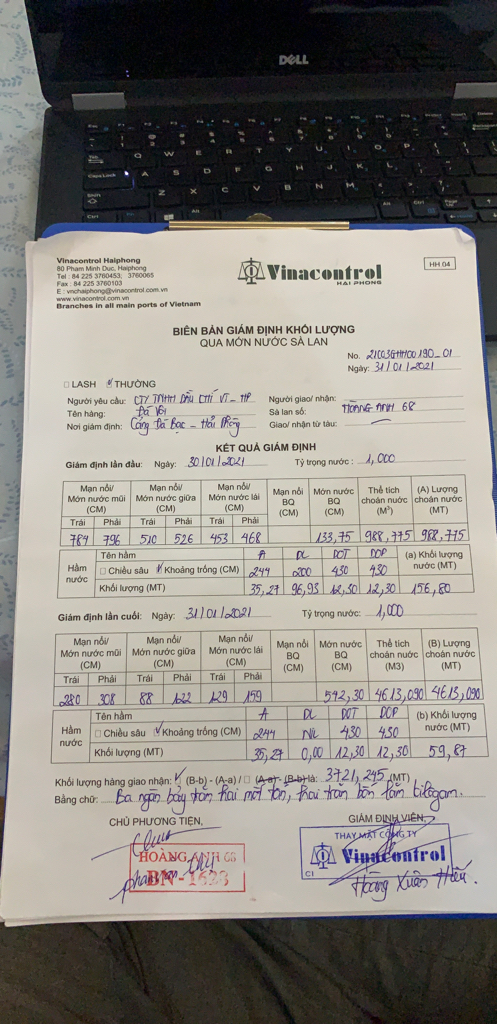 DELL
Vinacontrol Haiphong
80 Pham Minh Duc, Haiphong
Tel : 84 225 3760453; 3760065
Fax : 84 225 3760103
E : vnchaiphong@vinacontrol.com.vn
www.vinacontrol.com.vn
Branches in all main ports of Vietnam
Vinacontrol
HAI PHONG
HH 04
BIÊN BẢN GIÁM ĐỊNH KHỐI LƯỢNG
QUA MỚN NƯỚC SÀ LAN
No. 21G03GHH00190_01
Ngày: 31/01/2021
□ LASH ☑ THƯỜNG
Người yêu cầu: CTY TNHH DẦU KHÍ VT - HP Người giao/ nhận:
Tên hàng: Đá Vôi Sà lan số: HOÀNG ANH 68
Nơi giám định: Cảng Đá Bạc - Hải Phòng Giao/ nhận từ tàu:
KẾT QUẢ GIÁM ĐỊNH
Giám định lần đầu: Ngày: 30/01/2021 Tỷ trọng nước : 1,000
Mạn nổi/ Mớn nước mũi (CM) Mạn nổi/ Mớn nước giữa (CM) Mạn nổi/ Mớn nước lái (CM) Mạn nổi BQ (CM) Mớn nước BQ (CM) Thể tích choán nước (M³) (A) Lượng choán nước (MT)
Trái Phải Trái Phải Trái Phải
784 796 510 526 453 468 133,75 988,775 988,775
Hầm nước Tên hầm A DL DOT DOP (a) Khối lượng nước (MT)
□ Chiều sâu ☑ Khoảng trống (CM) 244 200 430 430
Khối lượng (MT) 35,27 96,93 12,30 12,30 156,80
Giám định lần cuối: Ngày: 31/01/2021 Tỷ trọng nước: 1,000
Mạn nổi/ Mớn nước mũi (CM) Mạn nổi/ Mớn nước giữa (CM) Mạn nổi/ Mớn nước lái (CM) Mạn nổi BQ (CM) Mớn nước BQ (CM) Thể tích choán nước (M3) (B) Lượng choán nước (MT)
Trái Phải Trái Phải Trái Phải
280 308 88 122 129 159 542,30 4613,090 4613,090
Hầm nước Tên hầm A DL DOT DOP (b) Khối lượng nước (MT)
□ Chiều sâu ☑ Khoảng trống (CM) 244 NIL 430 430
Khối lượng (MT) 35,27 0,00 12,30 12,30 59,87
Khối lượng hàng giao nhận: ☑ (B-b) - (A-a) / □ (A-a) - (B-b) là: 3721,245 (MT)
Bằng chữ: Ba ngàn bảy trăm hai mốt tấn, hai trăm bốn lăm kilogam.
CHỦ PHƯƠNG TIỆN, GIÁM ĐỊNH VIÊN,
HOÀNG ANH 68
BN - 1628
THAY MẶT CÔNG TY
Vinacontrol
CI
Hoàng Xuân Hiếu.